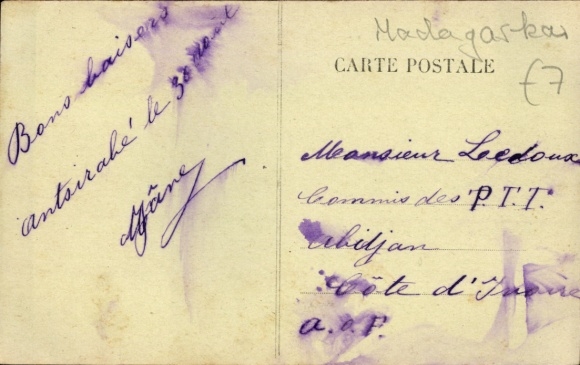 Bons baisers
antsirabé le 30 août
Madagaskar
CARTE POSTALE
£7
Monsieur Ledoux
Commis des P.T.T.
Abidjan
Côte d'Ivoire
a.o.F.